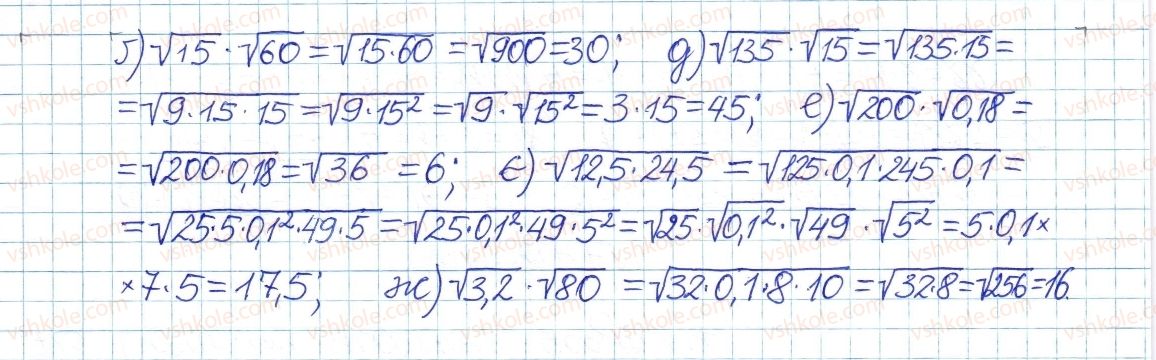 г) √15 · √60 = √15·60 = √900 = 30; д) √135 · √15 = √135·15 =
= √9·15·15 = √9·15² = √9 · √15² = 3·15 = 45; е) √200 · √0,18 =
= √200·0,18 = √36 = 6; є) √12,5·24,5 = √125·0,1·245·0,1 =
= √25·5·0,1²·49·5 = √25·0,1²·49·5² = √25 · √0,1² · √49 · √5² = 5·0,1×
×7·5 = 17,5; ж) √3,2 · √80 = √32·0,1·8·10 = √32·8 = √256 = 16.
vshkole.com